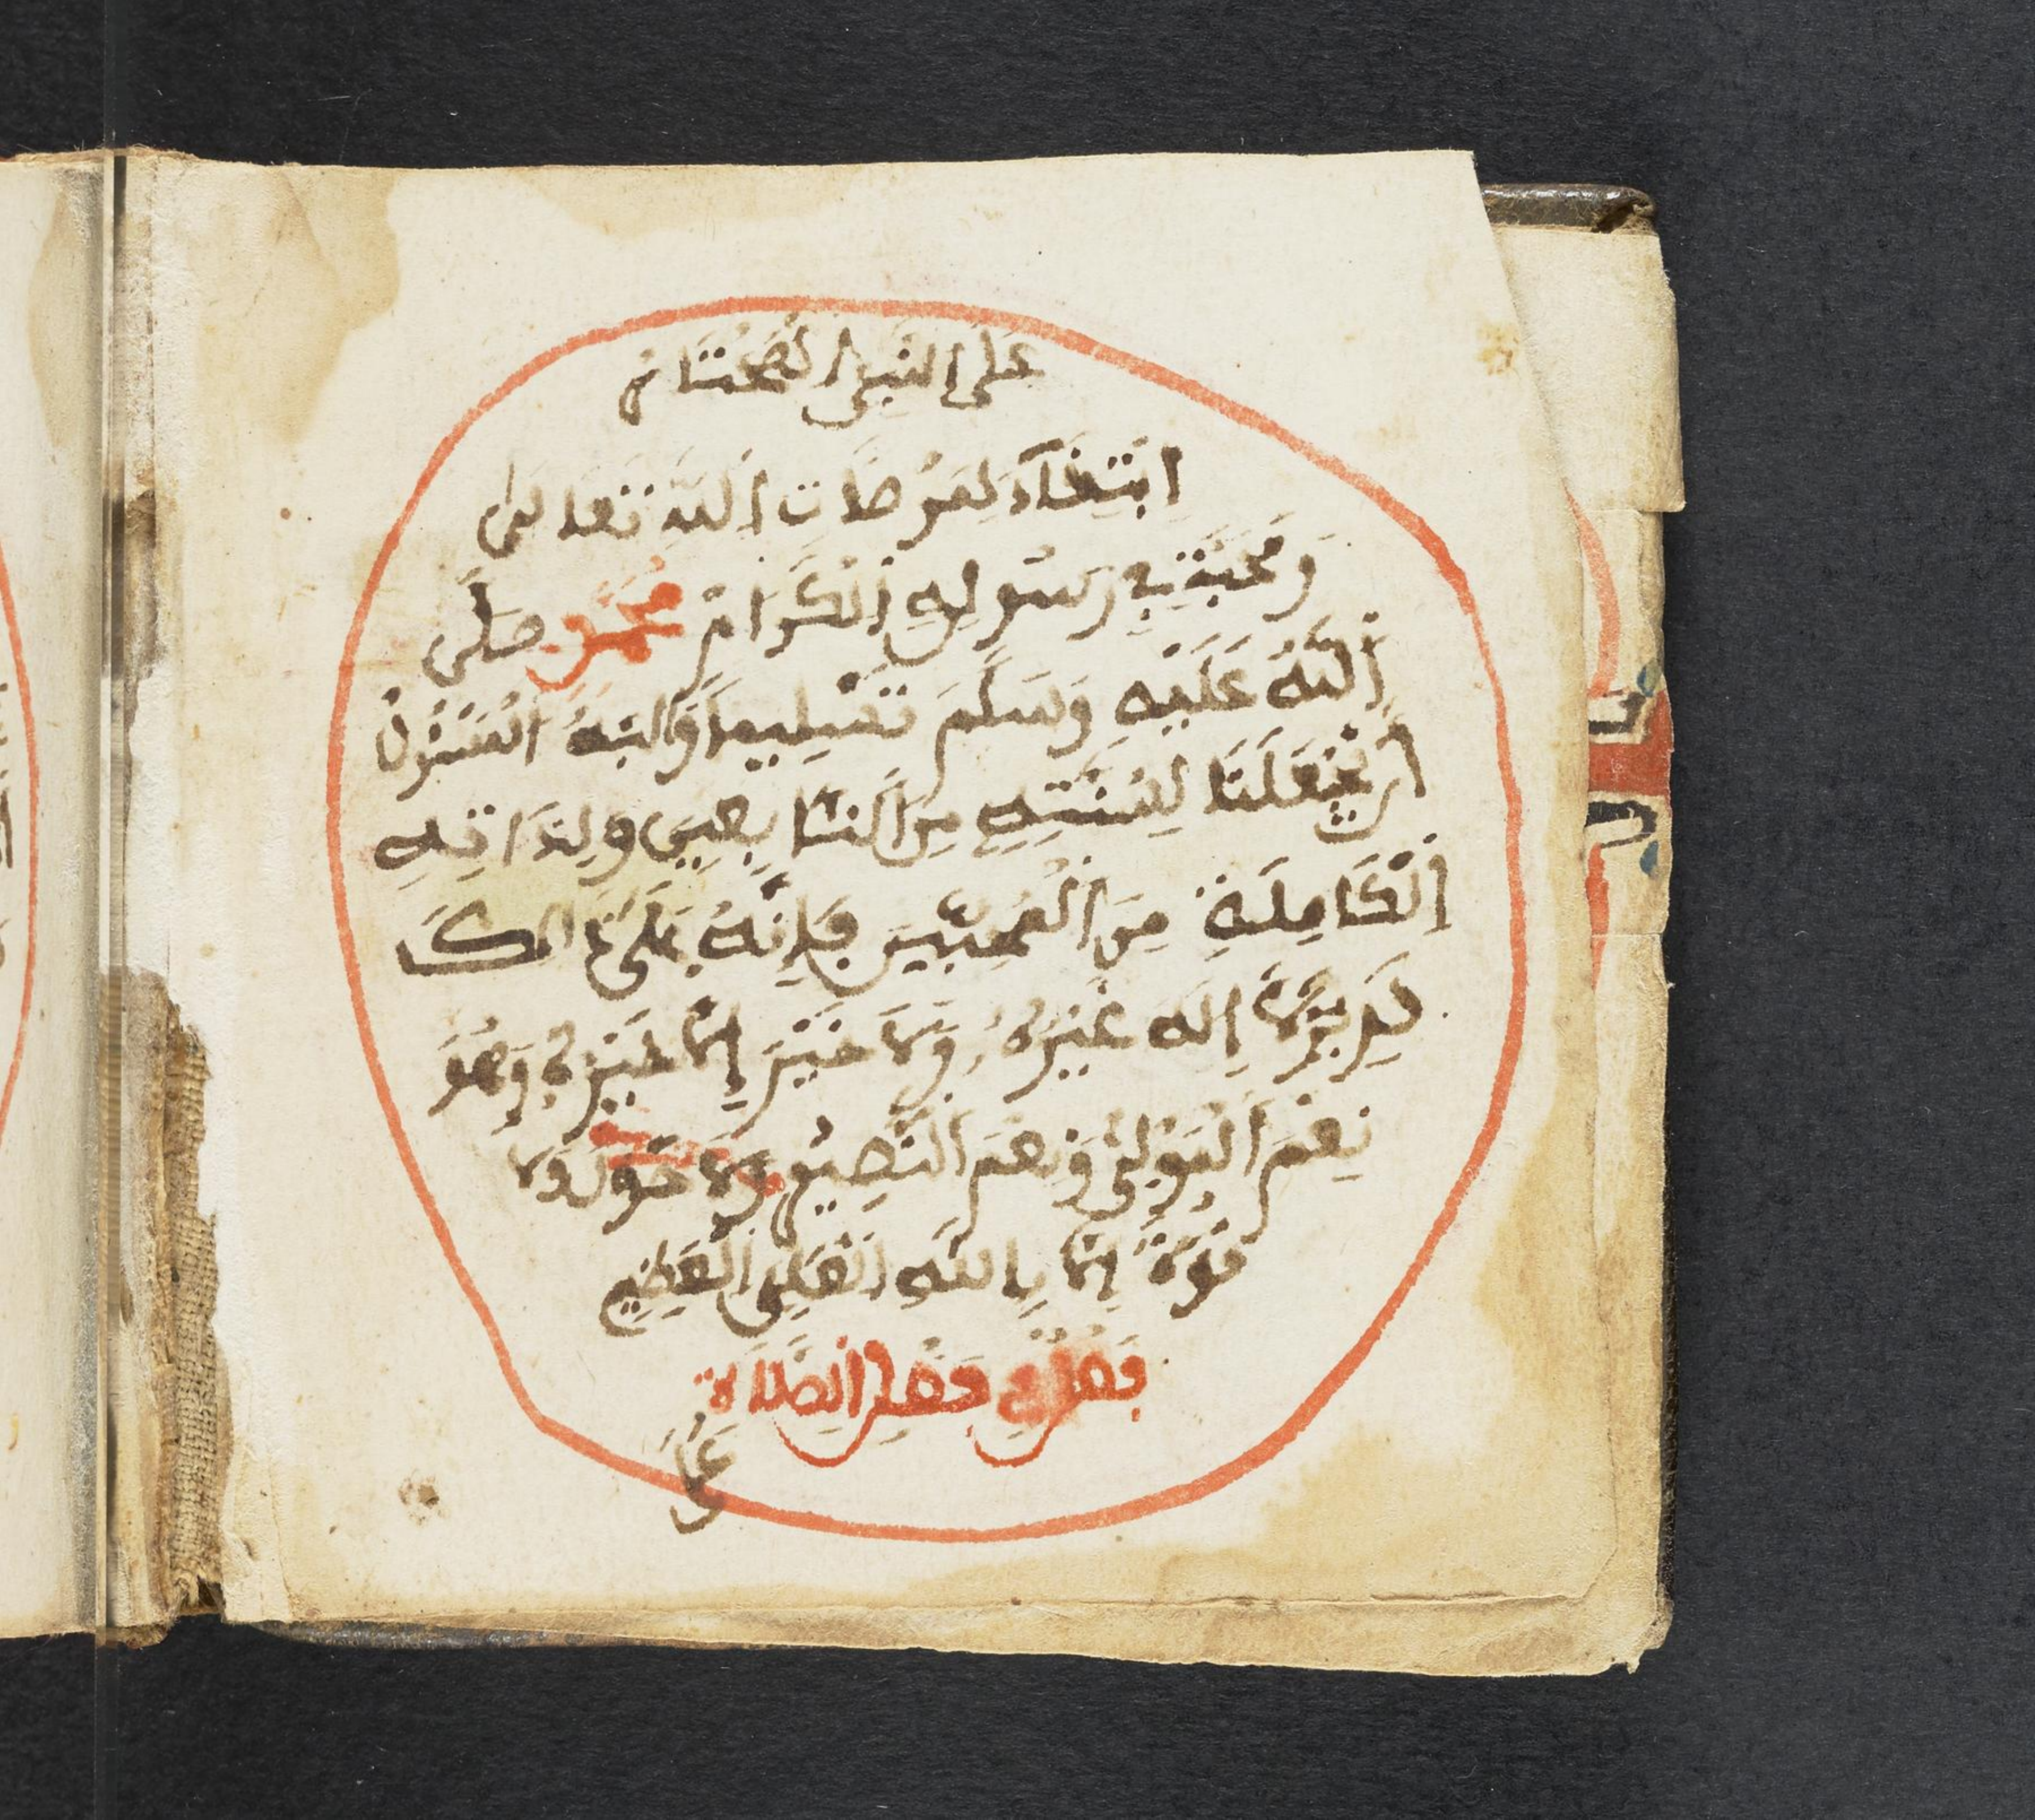 عَلَى النَّبِيِّ الْمُخْتَارِ
ابْتِغَاءً لِمَرْضَاتِ اللَّهِ تَعَالَى
وَمَحَبَّةً فِي رَسُولِهِ الْكَرِامِ مُحَمَّدٍ صَلَّى
اللَّهُ عَلَيْهِ وَسَلَّمَ تَسْلِيمًا وَاللَّهُ الْمَسْئُولُ
أَنْ يَجْعَلَنَا لِسُنَّتِهِ مِنَ التَّابِعِينَ وَلِذَاتِهِ
الْكَامِلَةِ مِنَ الْمُحِبِّينَ فَإِنَّهُ عَلَى ذَالِكَ
لَقَدِيرٌ لَا إِلَهَ غَيْرُهُ وَلَا خَيْرَ إِلَّا خَيْرُهُ وَهُوَ
نِعْمَ الْمَوْلَى وَنِعْمَ النَّصِيرُ وَلَا حَوْلَ وَلَا
قُوَّةَ إِلَّا بِاللَّهِ الْعَلِيِّ الْعَظِيمِ
فَصْلٌ فِي فَضْلِ الصَّلَاةِ
عَلَى